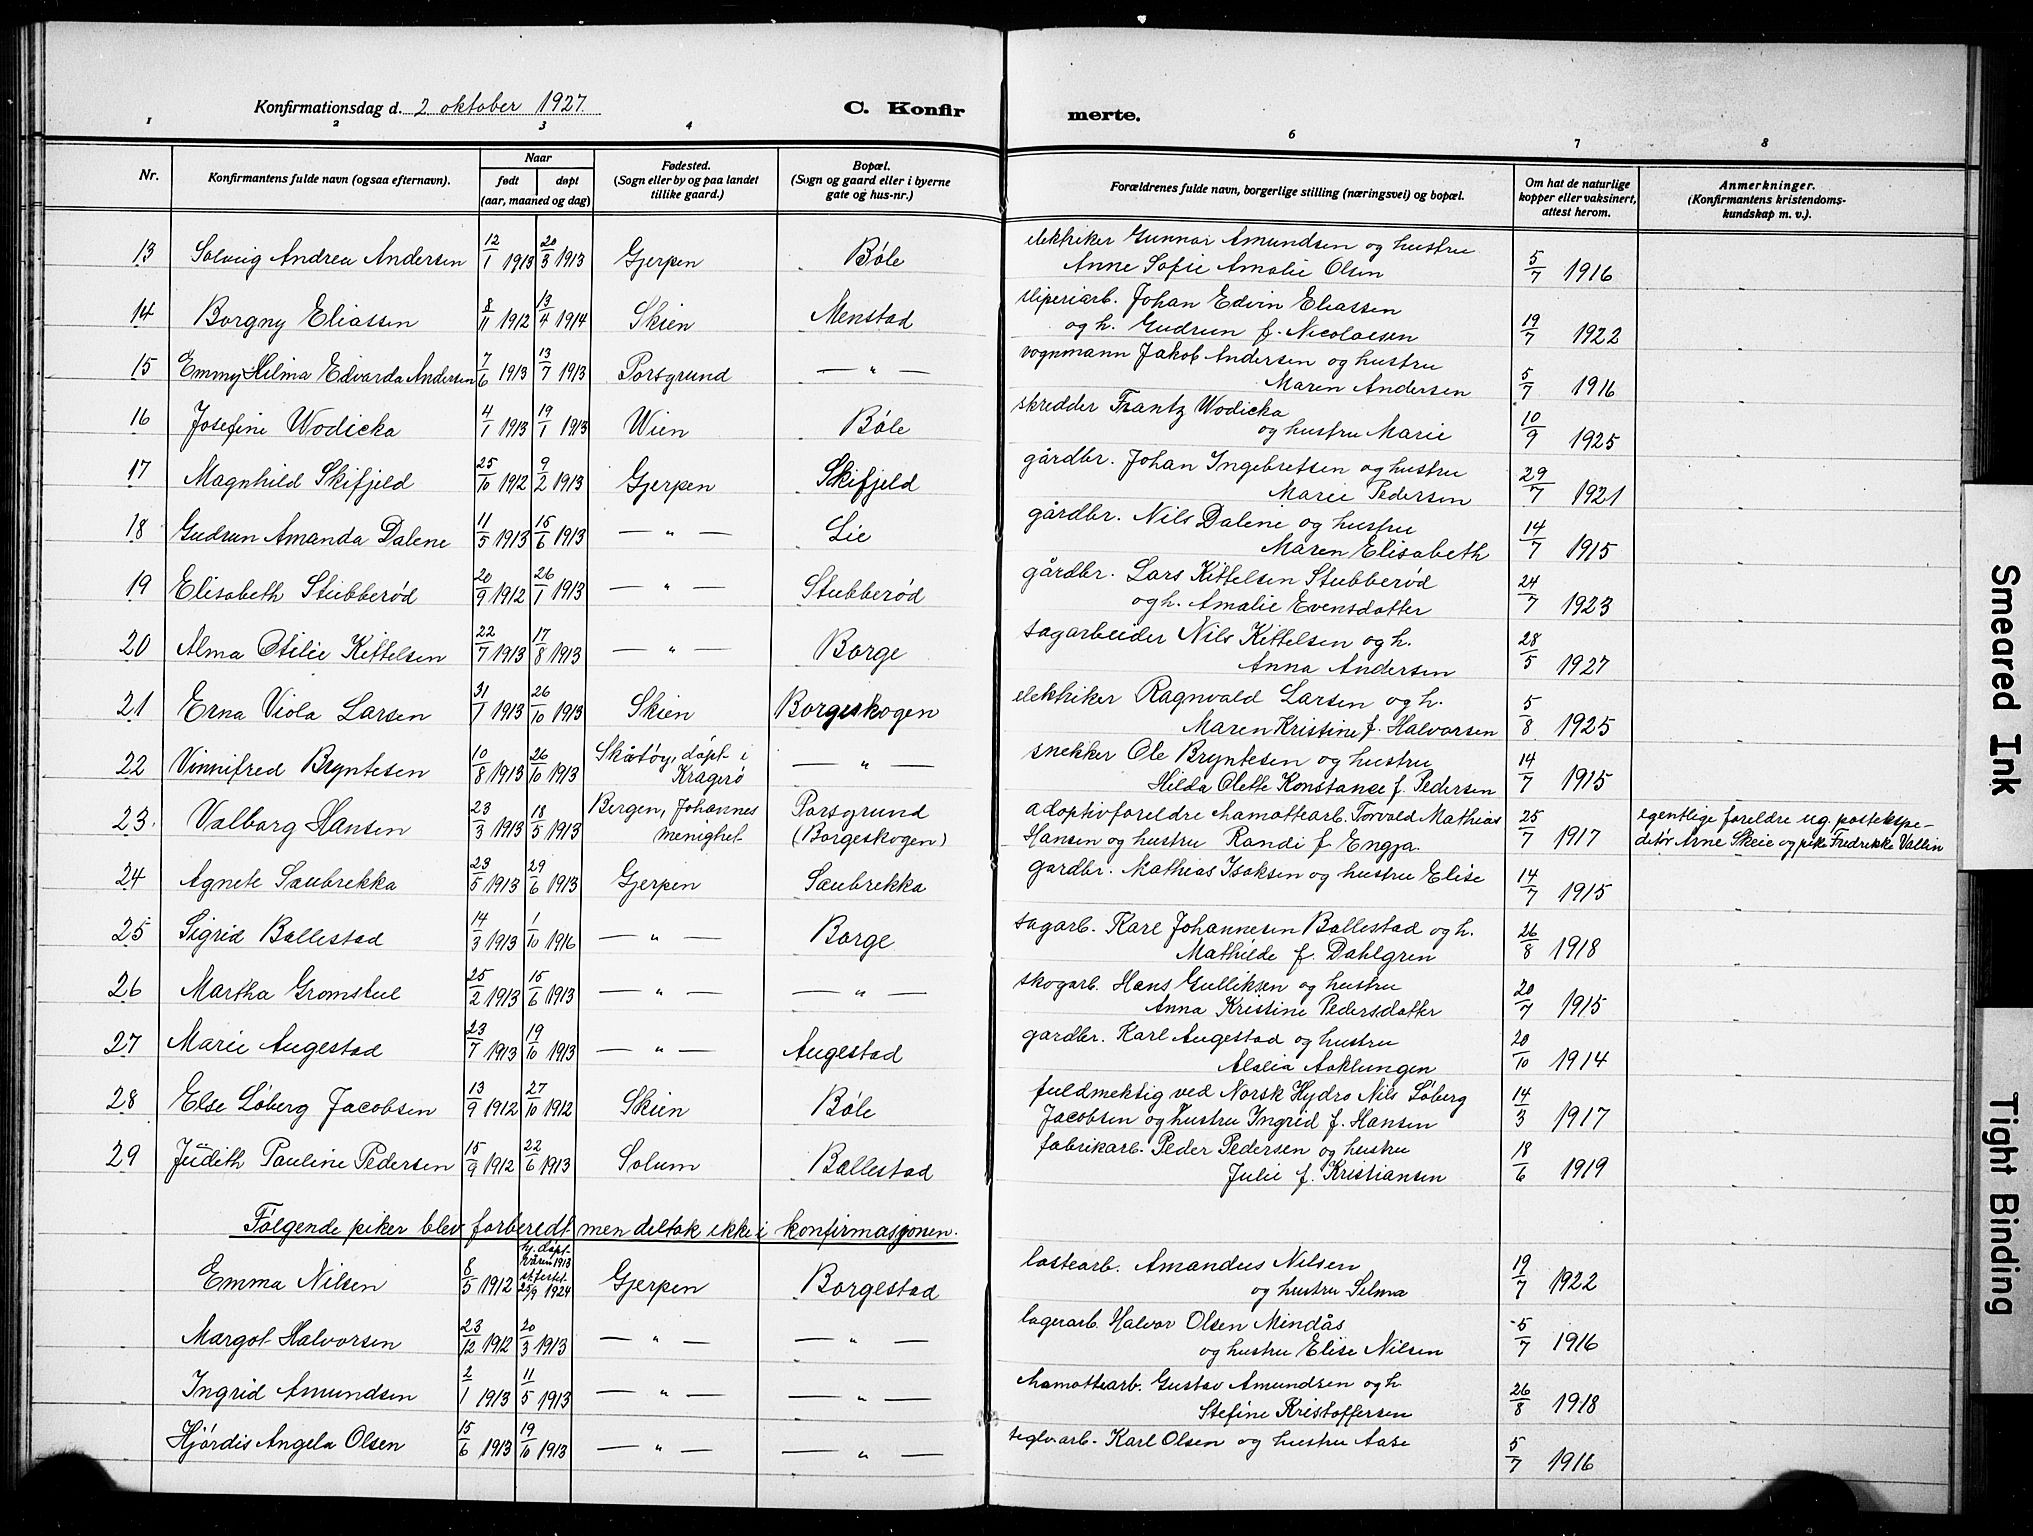 Konfirmationsdag d. 2 oktober 1927.
C. Konfir merte.
1 2 3 4 6 7 8
Nr.
Konfirmantens fulde navn (ogsaa efternavn).
Naar
født døpt
(aar, maaned og dag)
Fødested.
(Sogn eller by og paa landet
tillike gaard.)
Bopæl.
(Sogn og gaard eller i byerne
gate og hus-nr.)
Forældrenes fulde navn, borgerlige stilling (næringsvei) og bopæl.
Om hat de naturlige
kopper eller vaksinert,
attest herom.
Anmerkninger.
(Konfirmantens kristendoms-
kundskap m. v.).
13 Solveig Andrea Andersen 12/1 1913 20/3 1913 Gjerpen Bøle elektriker Gunnar Amundsen og hustru
Anne Sofie Amalie Olsen 5/7 1916
14 Borgny Eliassen 8/11 1912 13/4 1914 Skien Menstad sliperiarb. Johan Edvin Eliassen
og h. Gudrun f. Nicolaisen 19/7 1922
15 Emmy Hilma Edvarda Andersen 7/6 1913 13/7 1913 Porsgrund — " — vognmann Jakob Andersen og hustru
Maren Andersen 5/7 1916
16 Josefine Wodicka 4/1 1913 19/1 1913 Wien Bøle skredder Frantz Wodicka
og hustru Marie 10/9 1925
17 Magnhild Skifjeld 25/10 1912 9/2 1913 Gjerpen Skifjeld gårdbr. Johan Ingebretsen og hustru
Marie Pedersen 29/7 1921
18 Gudrun Amanda Dalene 11/5 1913 15/6 1913 — " — Lie gårdbr. Nils Dalene og hustru
Maren Elisabeth 14/7 1915
19 Elisabeth Stubberød 20/9 1912 26/1 1913 — " — Stubberød gårdbr. Lars Kittelsen Stubberød
og h. Amalie Evensdatter 24/7 1923
20 Alma Otilie Kittelsen 22/7 1913 17/8 1913 — " — Borge sagarbeider Nils Kittelsen og h.
Anna Andersen 28/5 1927
21 Erna Viola Larsen 31/1 1913 26/10 1913 Skien Borgeskogen elektriker Ragnvald Larsen og h.
Maren Kristine f. Halvorsen 5/8 1925
22 Vinnifred Bryntesen 10/8 1913 26/10 1913 Skåtøy, døpt i
Kragerø — " — snekker Ole Bryntesen og hustru
Hilda Olette Konstance f. Pedersen 14/7 1915
23. Valborg Hansen 23/3 1913 18/5 1913 Bergen, Johannes
menighet Porsgrund
(Borgeskogen) adoptivforeldre chamottearb. Torvald Mathias
Hansen og hustru Randi f. Engja. 25/7 1917 egentlige foreldre ug. postekspe-
ditør Arne Skeie og pike Fredrikke Vallin
24 Agnete Saubrekka 23/5 1913 29/6 1913 Gjerpen Saubrekka gardbr. Mathias Isaksen og hustru Elise 14/7 1915
25 Sigrid Ballestad 14/3 1913 1/10 1916 — " — Borge sagarb. Karl Johannesen Ballestad og h.
Mathilde f. Dahlgren 26/8 1918
26 Martha Gromstul 25/2 1913 15/6 1913 — " — — " — skogarb. Hans Gulliksen og hustru
Anna Kristine Pedersdatter 20/7 1915
27 Marie Augestad 23/7 1913 19/10 1913 — " — Augestad gardbr. Karl Augestad og hustru
Alalia Aaklungen 20/10 1914
28 Else Løberg Jacobsen 13/9 1912 27/10 1912 Skien Bøle fuldmektig ved Norsk Hydro Nils Løberg
Jacobsen og hustru Ingrid f. Hansen 14/3 1917
29 Judith Pauline Pedersen 15/9 1912 22/6 1913 Solum Ballestad fabrikarb. Peder Pedersen og hustru
Julie f. Kristiansen 18/6 1919
Følgende piker blev forberedt men deltok ikke i konfirmasjonen.
Emma Nilsen 8/5 1912 hj. døpt
våren 1913
st.festet
25/9 1924 Gjerpen Borgestad lastearb. Amandus Nilsen
og hustru Selma 19/7 1922
Margot Halvorsen 23/12 1912 20/3 1913 — " — — " — lagerarb. Halvor Olsen Mindås
og hustru Elise Nilsen 5/7 1916
Ingrid Amundsen 2/1 1913 11/5 1913 — " — — " — chamottearb. Gustav Amundsen og h
Stefine Kristoffersen 26/8 1918
Hjørdis Angela Olsen 15/6 1913 19/10 1913 — " — — " — teglv.arb. Karl Olsen og hustru Aase 5/7 1916
Smeared Ink
Tight Binding